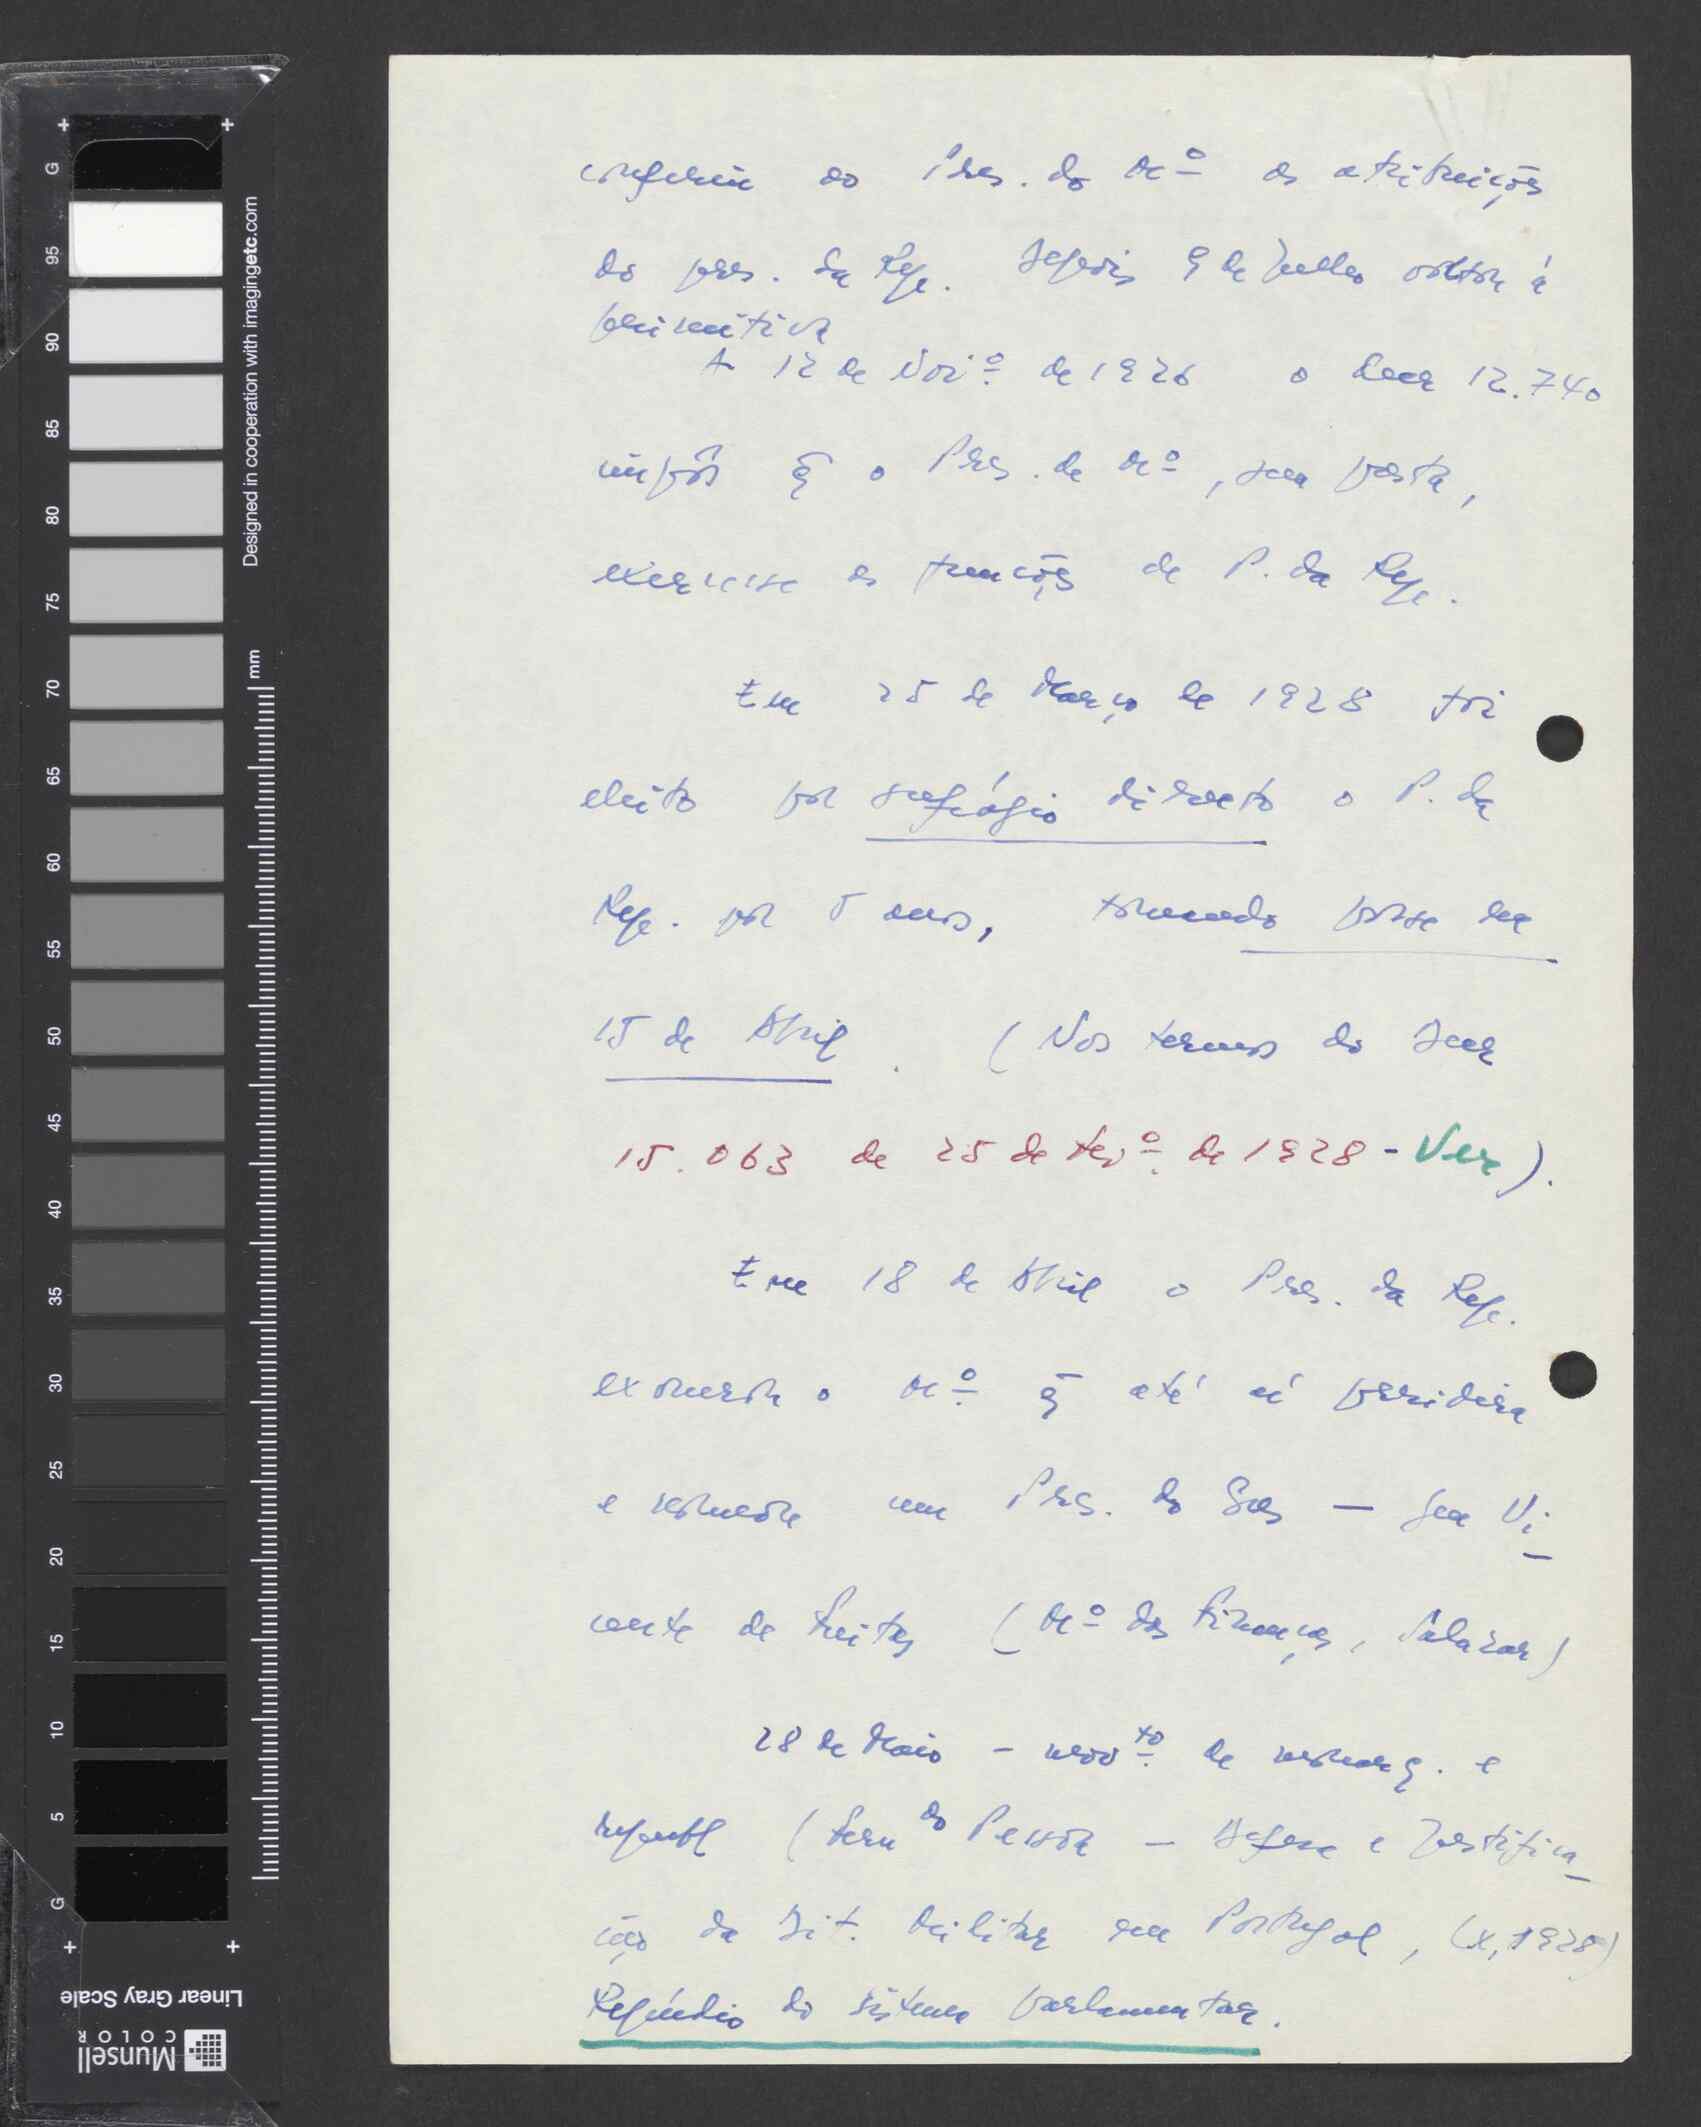 conferiu ao Pres. do Mº as atribuições
do pres. da Rep. Depois 9 de Julho voltou à
primitiva
A 12 de Novº. de 1926 o decr 12.740
impôs q̃ o Pres. de Mº, sem pasta,
exercesse as funções de P. da Rep.
Em 25 de Março de 1928 foi
eleito por sufrágio directo o P. da
Rep. por 5 anos, tomando posse em
15 de Abril. (Nos termos do Decr
15.063 de 25 de Fevº. de 1928 - Ver).
Em 18 de Abril o Pres. da Rep.
exonerou o Mº. q̃ até aí presidira
e nomeou um Pres. do Gov — Gen Vi-
cente de Freitas (Mº das Finanças, Salazar)
28 de Maio - movto. de monarq. e
republ (Fern do Pessoa — Defesa e Justifica-
ção da Dit. Militar em Portugal, (x, 1928)
Repúdio do sistema parlamentar.
Designed in cooperation with imagingetc.com
mm
G
95
90
85
80
75
70
65
60
55
50
45
40
35
30
25
20
15
10
5
G
Linear Gray Scale
Munsell
COLOR